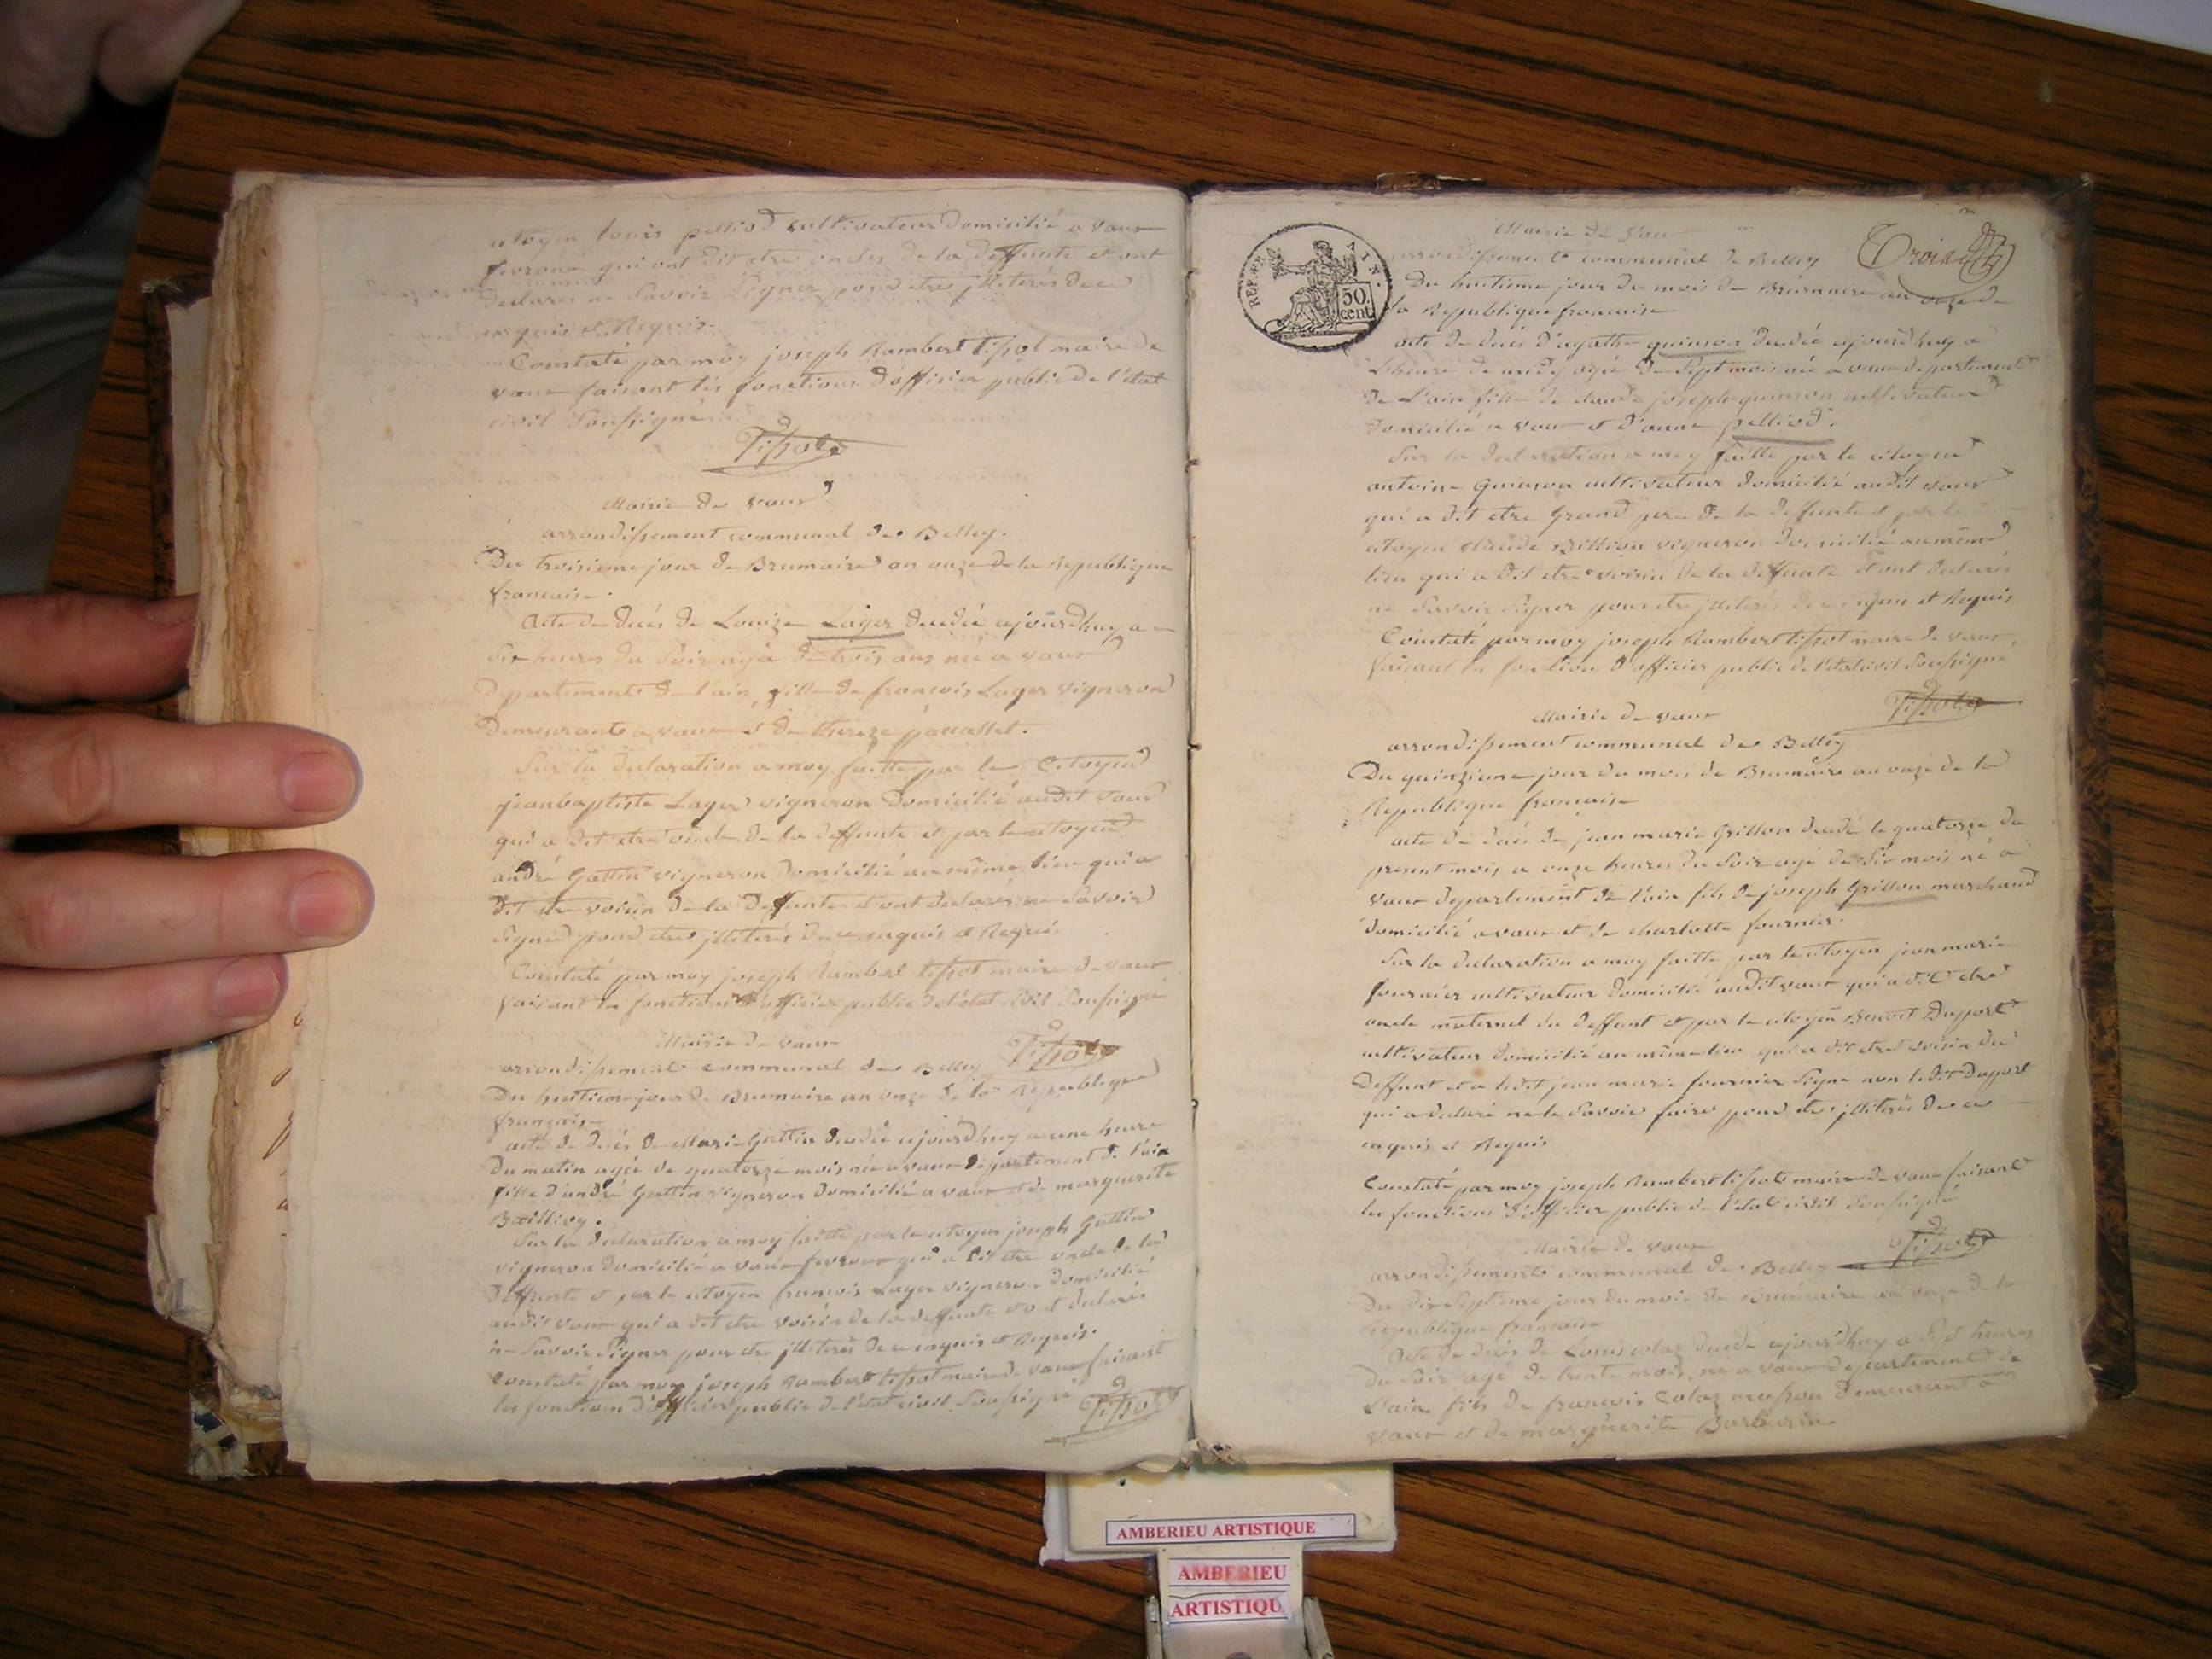 citoyen louis pelliod cultivateur domicilié a vaux
fevroux qui ont dit etre oncles de la deffunte et ont
declarés ne savoir signer pour etre jlliterés de ce
enquis et Requis.
Constaté par moy joseph Rambert tissot maire de
vaux faisant les fonctions d'officier public de l'état
civil soussigné
Tissot
Mairie de vaux
arrondissement communal de Belley.
Du troisieme jour de Brumaire an onze de la Republique
francaise.
Acte de decés de Louize Lager decedée ajourdhuy a
six heures du soir agée de trois ans née a vaux
departement de l'ain, fille de francois Lager vigneron
demeurant a vaux et de thereze
Sur la declaration a moy faitte par le Citoyen
jeanbaptiste Lager vigneron domicilié audit vaux
qui a dit etre oncle de la deffunte et par le citoyen
andré Gattin vigneron domicilié au même lieu qui a
dit etre voisin de la deffunte et ont declarés ne savoir
signer pour etre jlliterés de ce enquis et Requis
Constaté par moy joseph Rambert tissot maire de vaux
faisant les fonctions d'officier public de l'état civil soussigné
Mairie de vaux
Tissot
arrondissement communal de Belley
Du huitieme jour de Brumaire an onze de la Republique
francaise
acte de decés de Marie Gattin decedée ajourdhuy a une heure
du matin agée de quatorze mois née a vaux departement de l'ain
fille d'andré Gattin vigneron domicilié a vaux et de marguerite
Baillivy.
Sur la declaration a moy faitte par le citoyen joseph Gattin
vigneron domicilié a vaux fevroux qui a dit etre oncle de la
deffunte et par le citoyen francois Lager vigneron domicilié
audit vaux qui a dit etre voisin de la deffunte et ont declarés
ne savoir signer pour etre jlliterés de ce enquis et Requis.
Constaté par moy joseph Rambert tissot maire de vaux faisant
les fonctions d'officier public de l'état civil soussigné
Tissot
REP. FRA. AIN.
50
cent
Mairie de Vaux
Troise
arrondissement communal de Belley
Du huitieme jour du mois de Brumaire an onze de
la Republique francaise
acte de decés d'agathe quinson decedée ajourdhuy a
l'heure de midy agée de sept mois née a vaux departement
de l'ain fille de claude joseph quinson cultivateur
domicilié a vaux et d'anne pelliod.
Sur la declaration a moy faitte par le citoyen
antoine Quinson cultivateur domicilié audit vaux
qui a dit etre Grand pere de la deffunte et par le
citoyen claude Billion vigneron domicilié au même
lieu qui a dit etre voisin de la deffunte et ont declarés
ne savoir signer pour etre jlliterés de ce enquis et Requis
Constaté par moy joseph Rambert tissot maire de vaux
faisant les fonctions d'officier public de l'etat civil soussigné
Tissot
Mairie de vaux
arrondissement communal de Belley
Du quinzieme jour du mois de Brumaire an onze de la
Republique francaise
acte de decés de jean marie Grillon decedé le quatorze du
present mois a onze heures du soir agé de six mois né a
vaux departement de l'ain fils de joseph Grillon marchand
domicilié a vaux et de charlotte fournier.
Sur la declaration a moy faitte par le citoyen jean marie
fournier cultivateur domicilié audit vaux qui a dit etre
oncle maternel du deffunt et par le citoyen Benoit Duport
cultivateur domicilié au même lieu qui a dit etre voisin du
deffunt et a ledit jean marie fournier signé non ledit Duport
qui a declaré ne le savoir faire pour etre jlliteré de ce
enquis et Requis
Constaté par moy joseph Rambert tissot maire de vaux faisant
les fonctions d'officier public de l'état civil soussigné
Mairie de vaux
Tissot
arrondissement communal de Belley
Du dix septieme jour du mois de Brumaire an onze de la
Republique francaise
Acte de decés de Louis colaz decedé ajourdhuy a sept heures
du soir agé de trente mois, né a vaux departement de
l'ain fils de francois Colaz masson demeurant a
vaux et de marguerite Barberin
AMBERIEU ARTISTIQUE
AMBERIEU
ARTISTIQU